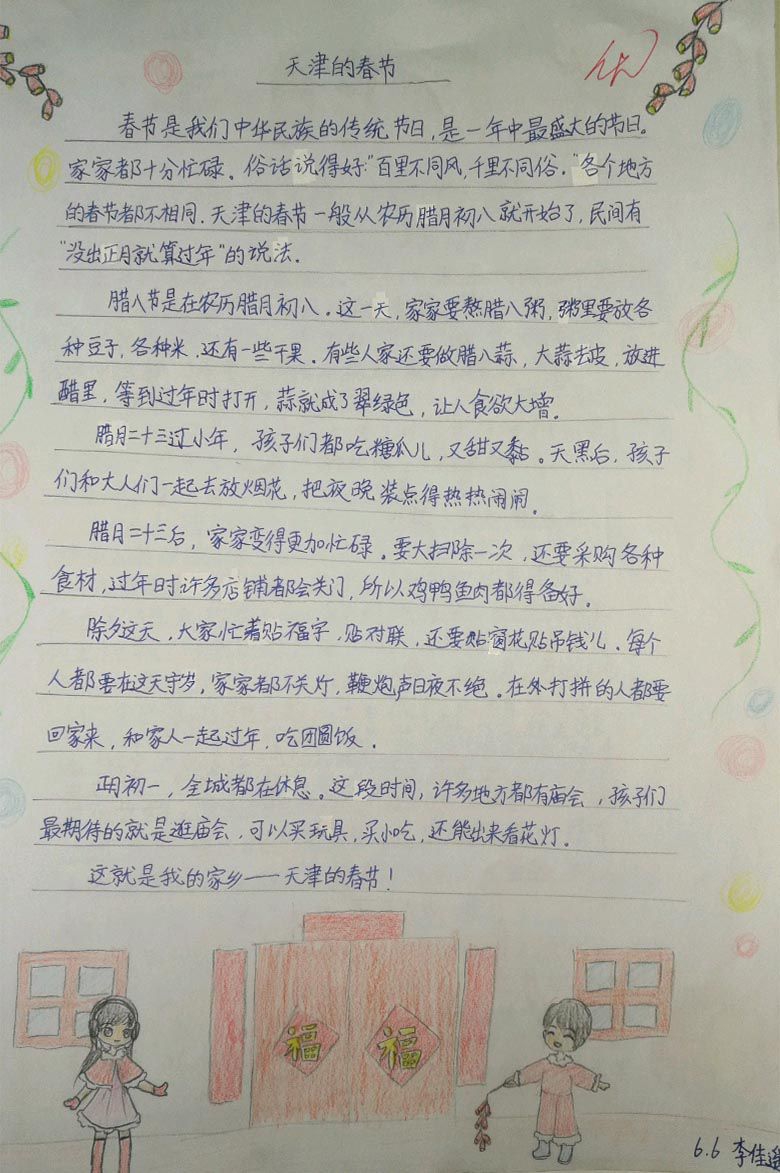 天津的春节
优
春节是我们中华民族的传统节日，是一年中最盛大的节日。
家家都十分忙碌。俗话说得好："百里不同风，千里不同俗。"各个地方
的春节都不相同。天津的春节一般从农历腊月初八就开始了，民间有
"没出正月就算过年"的说法。
腊八节是在农历腊月初八。这一天，家家要熬腊八粥，粥里要放各
种豆子，各种米，还有一些干果。有些人家还要做腊八蒜，大蒜去皮，放进
醋里，等到过年时打开，蒜就成了翠绿色，让人食欲大增。
腊月二十三过小年，孩子们都吃糖瓜儿，又甜又黏。天黑后，孩子
们和大人们一起去放烟花，把夜晚装点得热热闹闹。
腊月二十三后，家家变得更加忙碌。要大扫除一次，还要采购各种
食材，过年时许多店铺都会关门，所以鸡鸭鱼肉都得备好。
除夕这天，大家忙着贴福字，贴对联，还要贴窗花贴吊钱儿。每个
人都要在这天守岁，家家都不关灯，鞭炮声日夜不绝。在外打拼的人都要
回家来，和家人一起过年，吃团圆饭。
正月初一，全城都在休息。这段时间，许多地方都有庙会，孩子们
最期待的就是逛庙会，可以买玩具，买小吃，还能出来看花灯。
这就是我的家乡——天津的春节！
福 福
6.6 李佳